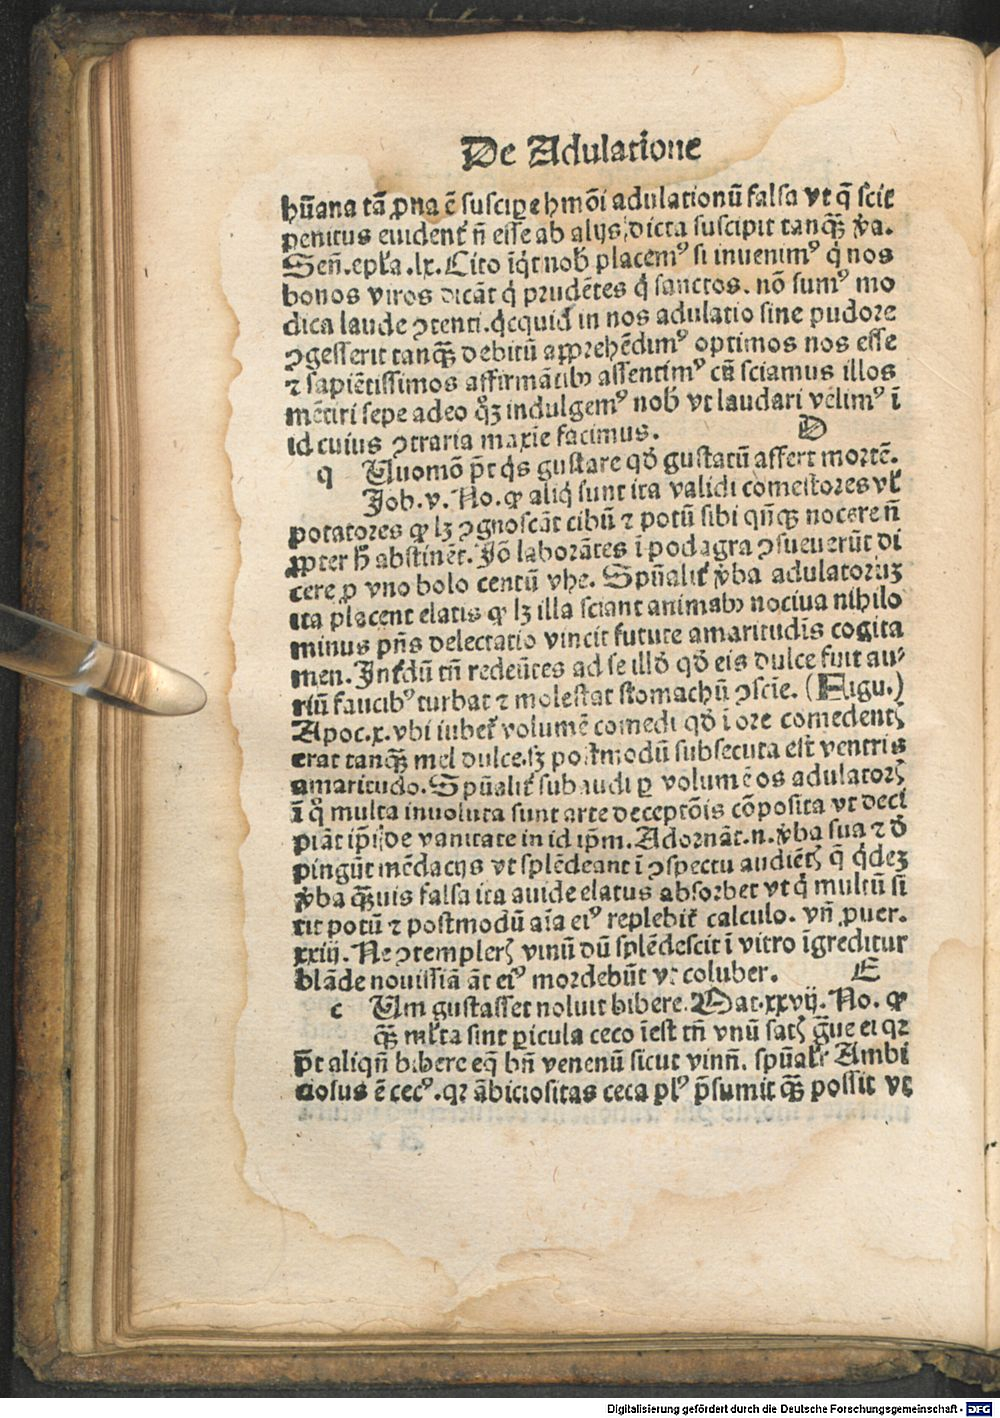 De Adulatione
hūana tā ꝓna ē suscipe hmōi adulationū falsa vt q̄ scit
penitus euident̉ n̄ esse ab alijs dicta suscipit tanqꝫ v̉a.
Sen̄. epl̄a. lx. Cito īqt nob̉ placemꝰ si inuenimꝰ q̉ nos
bonos viros dicāt q̉ prudētes q̉ sanctos. nō sumꝰ mo
dica laude ꝯtenti. q̉cquid in nos adulatio sine pudore
ꝯgesserit tanqꝫ debitū apprehēdimꝰ optimos nos esse
⁊ sapiētissimos affirmātibꝰ assentimꝰ cū sciamus illos
mētiri sepe adeo qꝫ indulgemꝰ nob̉ vt laudari velimꝰ ī
id cuius ꝯtraria maxīe facimus. D
q Quomō pt̄ q̉s gustare qd̓ gustatū affert mortē.
Job. v. No. ꝙ aliq̉ sunt ita validi comestores vl̉
potatores ꝙ lꝫ ꝯgnoscāt cibū ⁊ potū sibi qn̄qꝫ nocere n̄
ꝓpter h̓ abstinēt. Jō laborātes ī podagra ꝯsueuerūt di
cere ꝓ vno bolo centū vhe. Spūalit̉ v̉ba adulatoruꝫ
ita placent elatis ꝙ lꝫ illa sciant animabꝰ nociua nihilo
minus pn̄s delectatio vincit future amaritudīs cogita
men. Int̉dū tn̄ redeūtes ad se illd̓ qd̓ eis dulce fuit au⸗
riū faucibꝰ turbat ⁊ molestat stomachū ꝯscīe. (Figu.)
Apoc. x. vbi iubet̉ volumē comedi qd̓ ī ore comedentꝭ
erat tanqꝫ mel dulce. sꝫ postmodū subsecuta est ventris
amaritudo. Spūalit̉ subaudi ꝑ volumē os adulatorꝭ
ī q̊ multa inuoluta sunt arte deceptōis cōposita vt deci
piāt ip̄i de vanitate in id ip̄m. Adornāt. n. v̉ba sua ⁊ d̓
pingūt mēdacijs vt splēdeant ī ꝯspectu audiētꝭ q̄ q̉deꝫ
v̉ba qꝫuis falsa ita auide elatus absorbet vt q̉ multū si
tit potū ⁊ postmodū aīa eiꝰ replebit̉ calculo. vn̄ ꝓuer.
xxiij. Ne ꝯtemplerꝭ vinū dū splēdescit ī vitro īgreditur
blāde nouissiā āt eiꝰ mordebūt vt coluber. E
c Cum gustasset noluit bibere. Mat. xxvij. No. ꝙ
qꝫ ml̉ta sint pericula ceco īest tn̄ vnū satꝭ g̊ue ei qꝛ
pt̄ aliqn̄ bibere eq̄ bn̄ venenū sicut vinū. spūal̉r Ambi
ciosus ē cecꝰ. qꝛ ābiciositas ceca plꝰ p̄sumit qꝫ possit vt
Digitalisierung gefördert durch die Deutsche Forschungsgemeinschaft - DFG